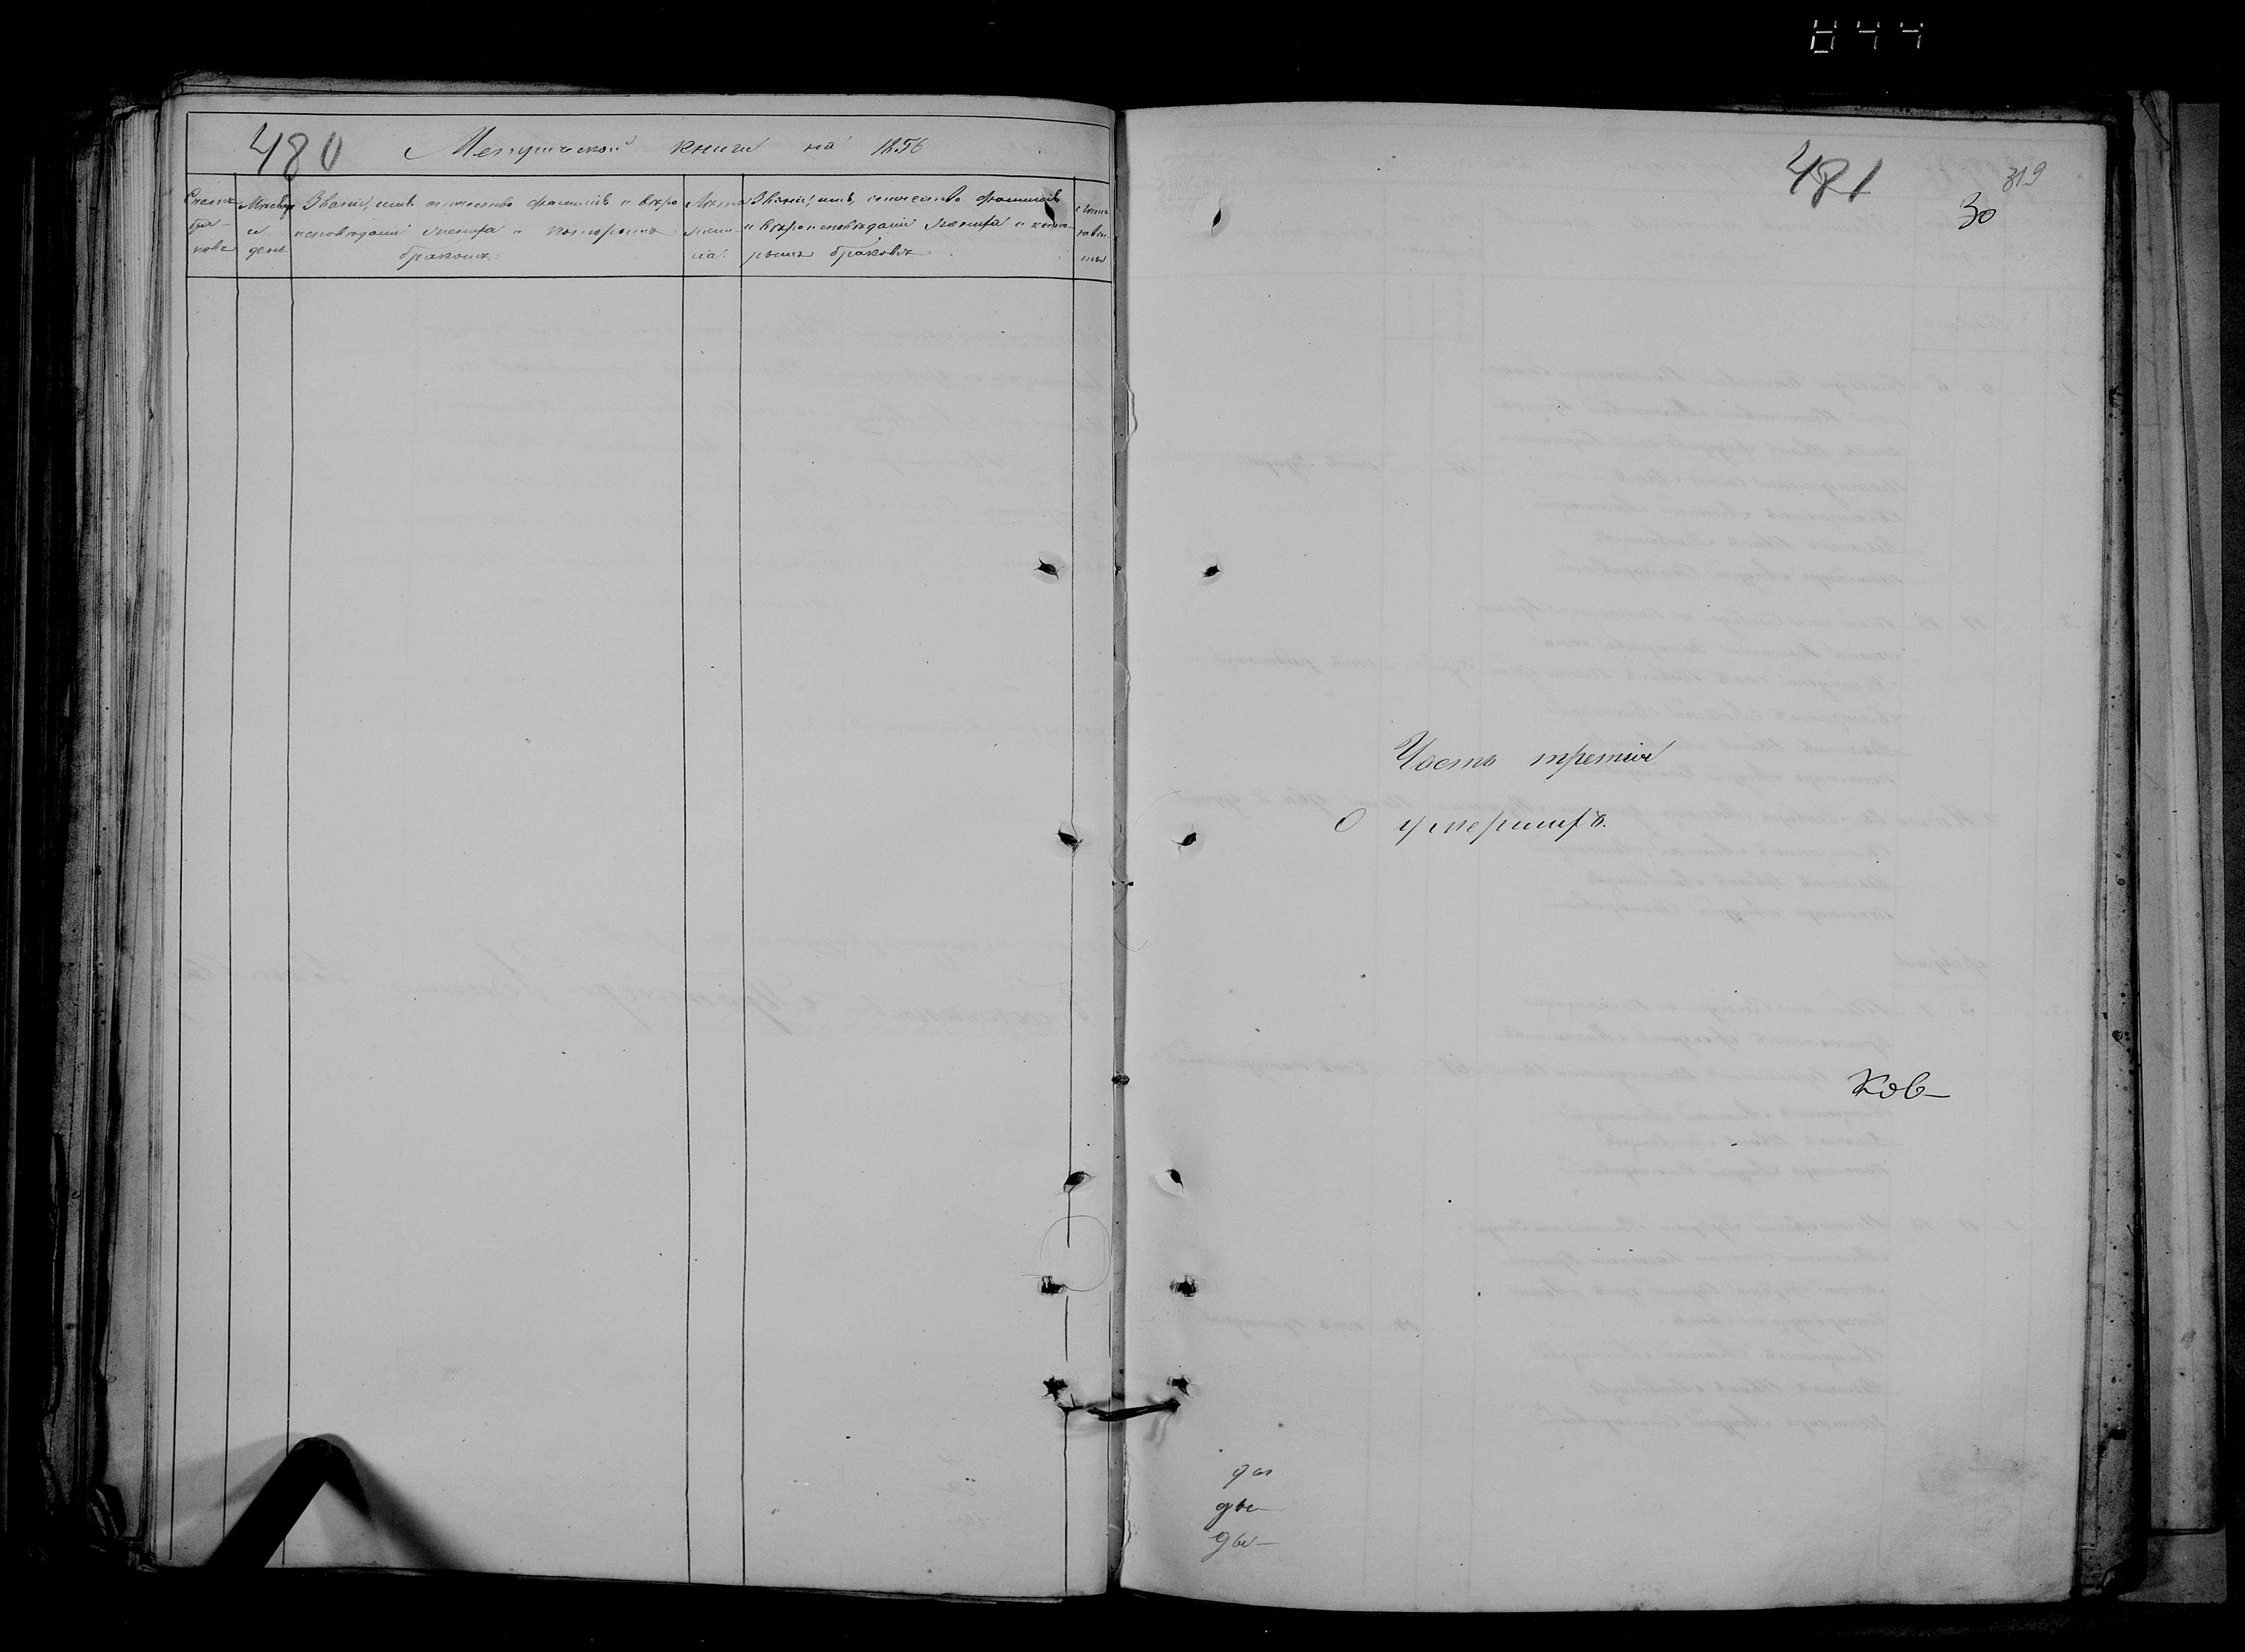 844
480 Метрической книги на 1856
Счетъ бра- ковъ
Мѣсяцъ и день
Званіе, имя, отчество, фамилія и вѣро
исповѣданіе жениха и которымъ
бракомъ
Лѣта жени- ха
Званіе, имя, отчество, фамилія
и вѣроисповѣданіе жениха и кото-
рымъ бракомъ
Лѣта невѣ- сты
481
319
30
Часть третія
О умершихъ.
Ков-